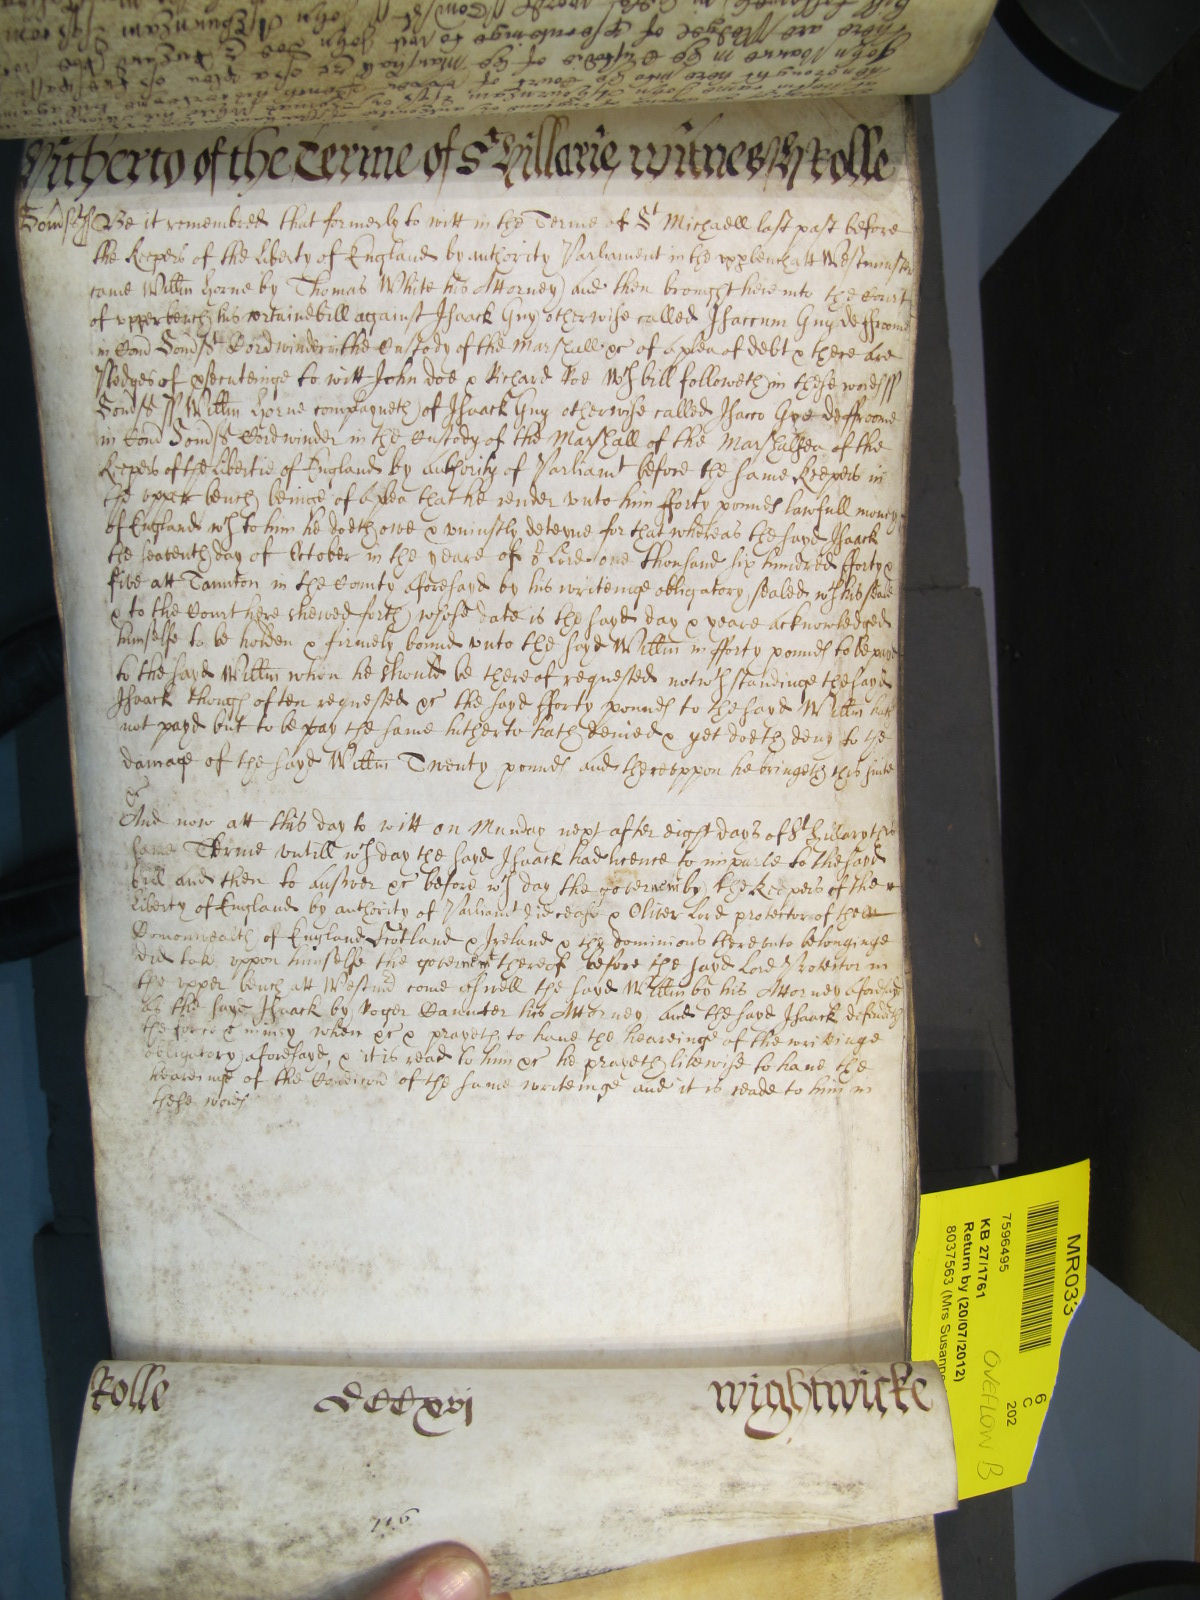 Hitherto of the Terme of St Hillarie witnes H Rolle
Somst ss Be it remembred that formerly to witt in the Terme of St Michaell last past before
the Keepers of the liberty of England by authority Parliament in the vpp bench att Westminster
came Willm Horne by Thomas White his Attorney and then brought here into the Court
of vpper bench his certaine bill against Isaack Guy otherwise called Isaccum Guy de ffroome
in Com Somst Cordwinder in the Custody of the Marshall &c of a plea of debt & there are
Pledges of psecuteinge to witt John Doe & Richard Roe wch bill followeth in these words ss
Somst ss Willm Horne complayneth of Isaack Guy otherwise called Isacco Gye de ffroome
in Com Somst Cordwinder in the Custody of the Marshall of the Marshalsea of the
Keepers of the libertie of England by authority of Parliamt before the same Keepers in
the vpper bench beinge of a plea that he render vnto him fforty pounds lawfull money
of England wch to him he doeth owe & vniustly deteyne for that whereas the sayd Isaack
the seaventh day of October in the yeare of or Lord one thousand six hundred fforty &
five att Taunton in the County aforesayd by his writeinge obligatory sealed wth his seale
& to the Court here shewed forth whose date is the sayd day & yeare acknowledged
himselfe to be holden & firmely bound vnto the sayd Willm in fforty pounds to be payd
to the sayd Willm when he should be thereof requested notwthstandinge the sayd
Isaack though often requested &c the sayd fforty pounds to the sayd Willm hath
not payd but to be pay the same hitherto hath denied & yet doeth deny to the
damage of the sayd Willm Twenty pounds and therevppon he bringeth this suite
&c
And now att this day to witt on Munday next after eight days of St Hillary this
same Terme vntill wch day the sayd Isaack had licence to imparle to the sayd
bill and then to answer &c before wch day the governmt by the Keepers of the
liberty of England by authority of Parliamt did cease & Oliver Lord protector of the
Comonwealth of England Scotland & Ireland & the dominions therevnto belonginge
did take vppon himselfe the governmt thereof before the sayd Lord Protector in
the vpper bench att Westmd come aswell the sayd Willm by his Attorney aforesayd
as the sayd Isaack by Roger Gaunter his Attorney and the sayd Isaack defendeth
the force & iniury when &c & prayeth to haue the heareinge of the writeinge
obligatory aforesayd & it is read to him &c he prayeth likewise to haue the
heareinge of the Condicon of the same writeinge and it is reade to him in
these words
Rolle
DCCxvj
Wightwicke
716
MR033
7596495
KB 27/1761
Return by (20/07/2012)
8037563 (Mrs Susanne
6
C
202
OVEFLOW B